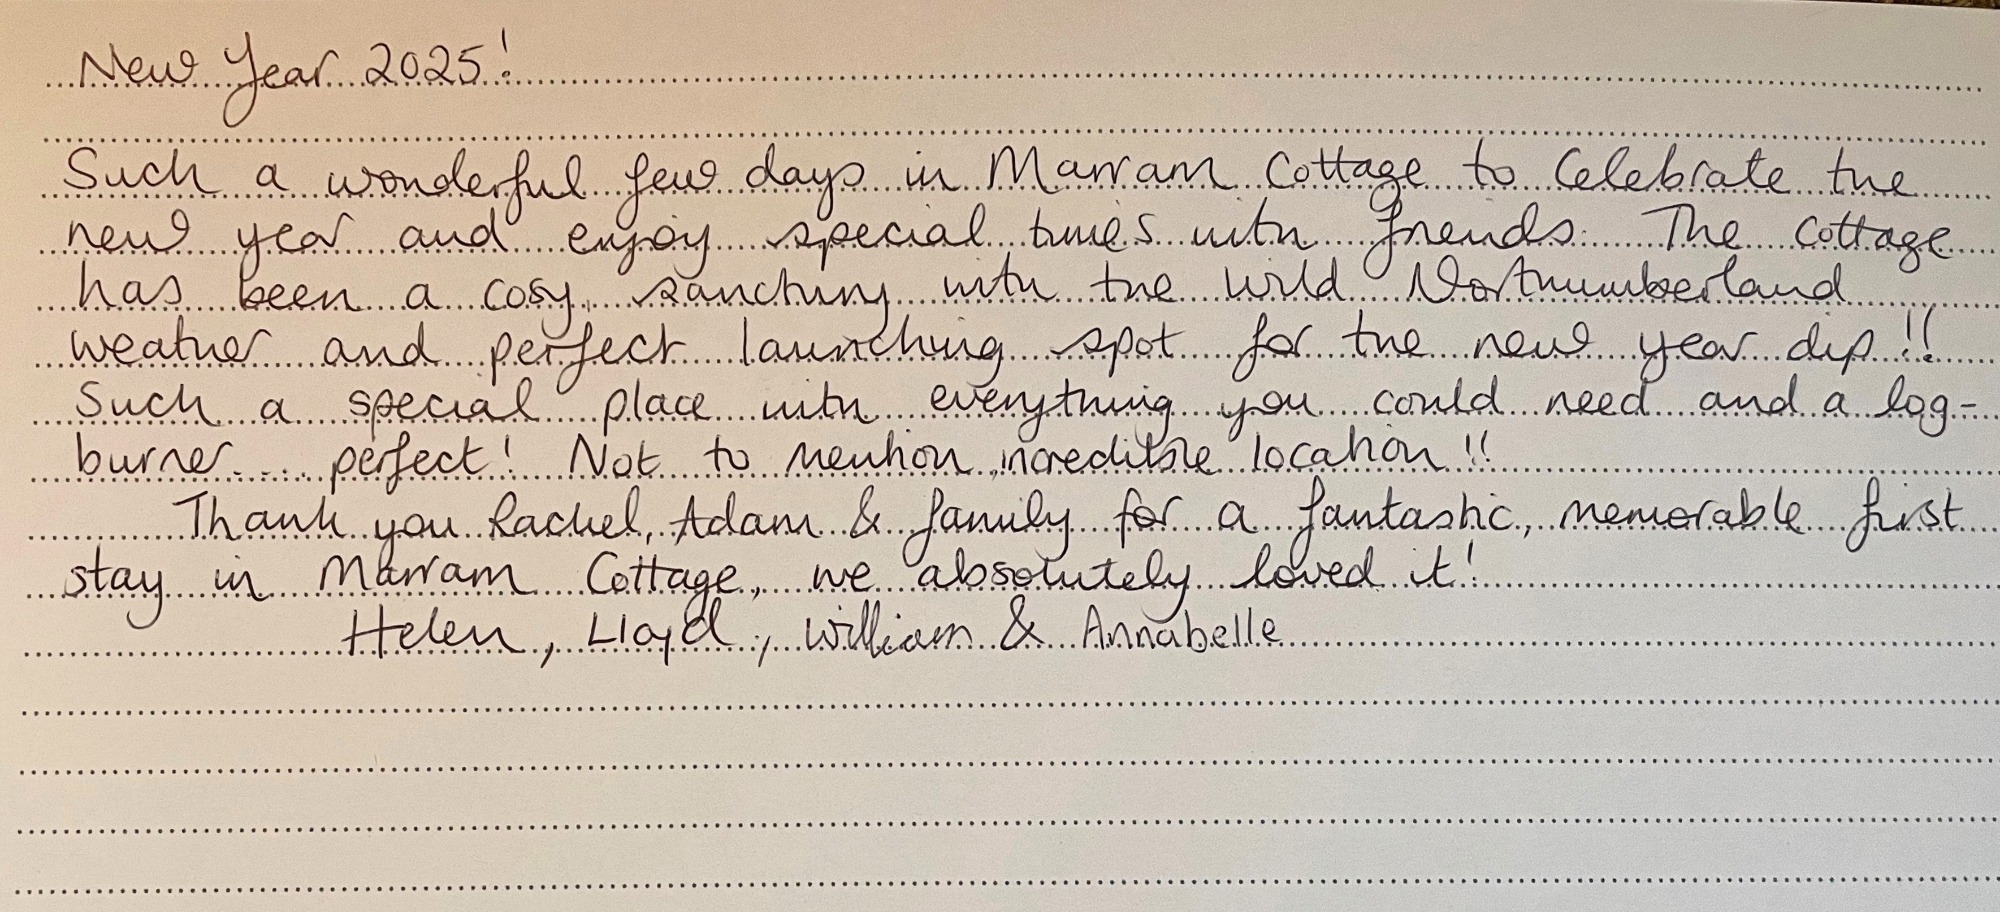 New Year 2025!
Such a wonderful few days in Marram Cottage to Celebrate the
new year and enjoy special times with friends. The Cottage
has been a cosy sanctuary with the wild Northumberland
weather and perfect launching spot for the new year dip!!
Such a special place with everything you could need and a log-
burner.... perfect! Not to mention incredible location!!
Thank you Rachel, Adam & family for a fantastic, memorable first
stay in Marram Cottage, we absolutely loved it!
Helen, Lloyd, William & Annabelle